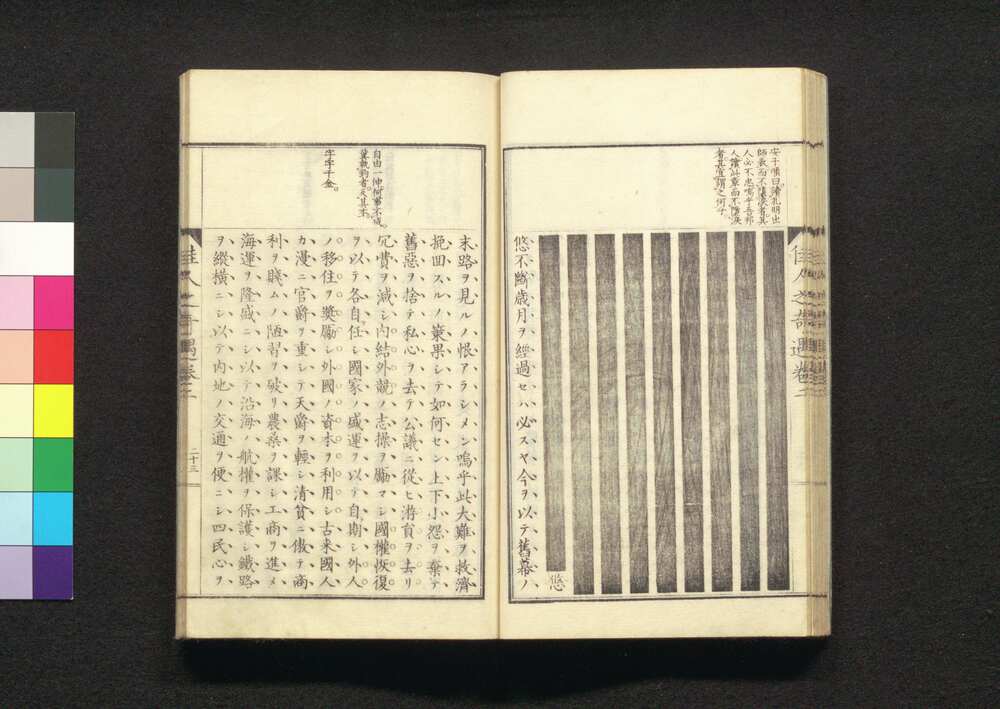 安子順曰讀孔明出
師表而不墮淚者其
人必不忠嗚乎吾邦
人讀此章而不墮淚
者其宜謂之何乎
佳人之奇遇卷二
悠
悠不斷歳月ヲ經過セハ必スヤ今ヲ以テ舊幕ノ
自由一伸何事不成
末路ヲ見ルノ恨アラシメン嗚乎此大難ヲ救濟
挽回スルノ藥果シテ如何セン上下小怨ヲ棄テ
舊惡ヲ捨テ私心ヲ去テ公議ニ從ヒ游ヲ去リ
冗費ヲ減シ内結外競ノ志操ヲ勵マシ國權恢復
ヲ以テ各自任シ國家ノ盛運ヲ以テ自期シ外人
ノ移住ヲ奬勵シ外國ノ資本ヲ利用シ古來國人
カ漫ニ官爵ヲ重シテ天爵ヲ輕シ清貧ニ傲テ商
利ヲ賤ムノ陋習ヲ破リ農桑ヲ課シ工商ヲ進メ
海運ヲ隆盛ニシ以テ沿海ノ航權ヲ保護シ鐵路
ヲ縱横ニシ以テ内地ノ交通ヲ便ニシ四民心ヲ
字字千金。
佳人之奇遇卷二
二十三